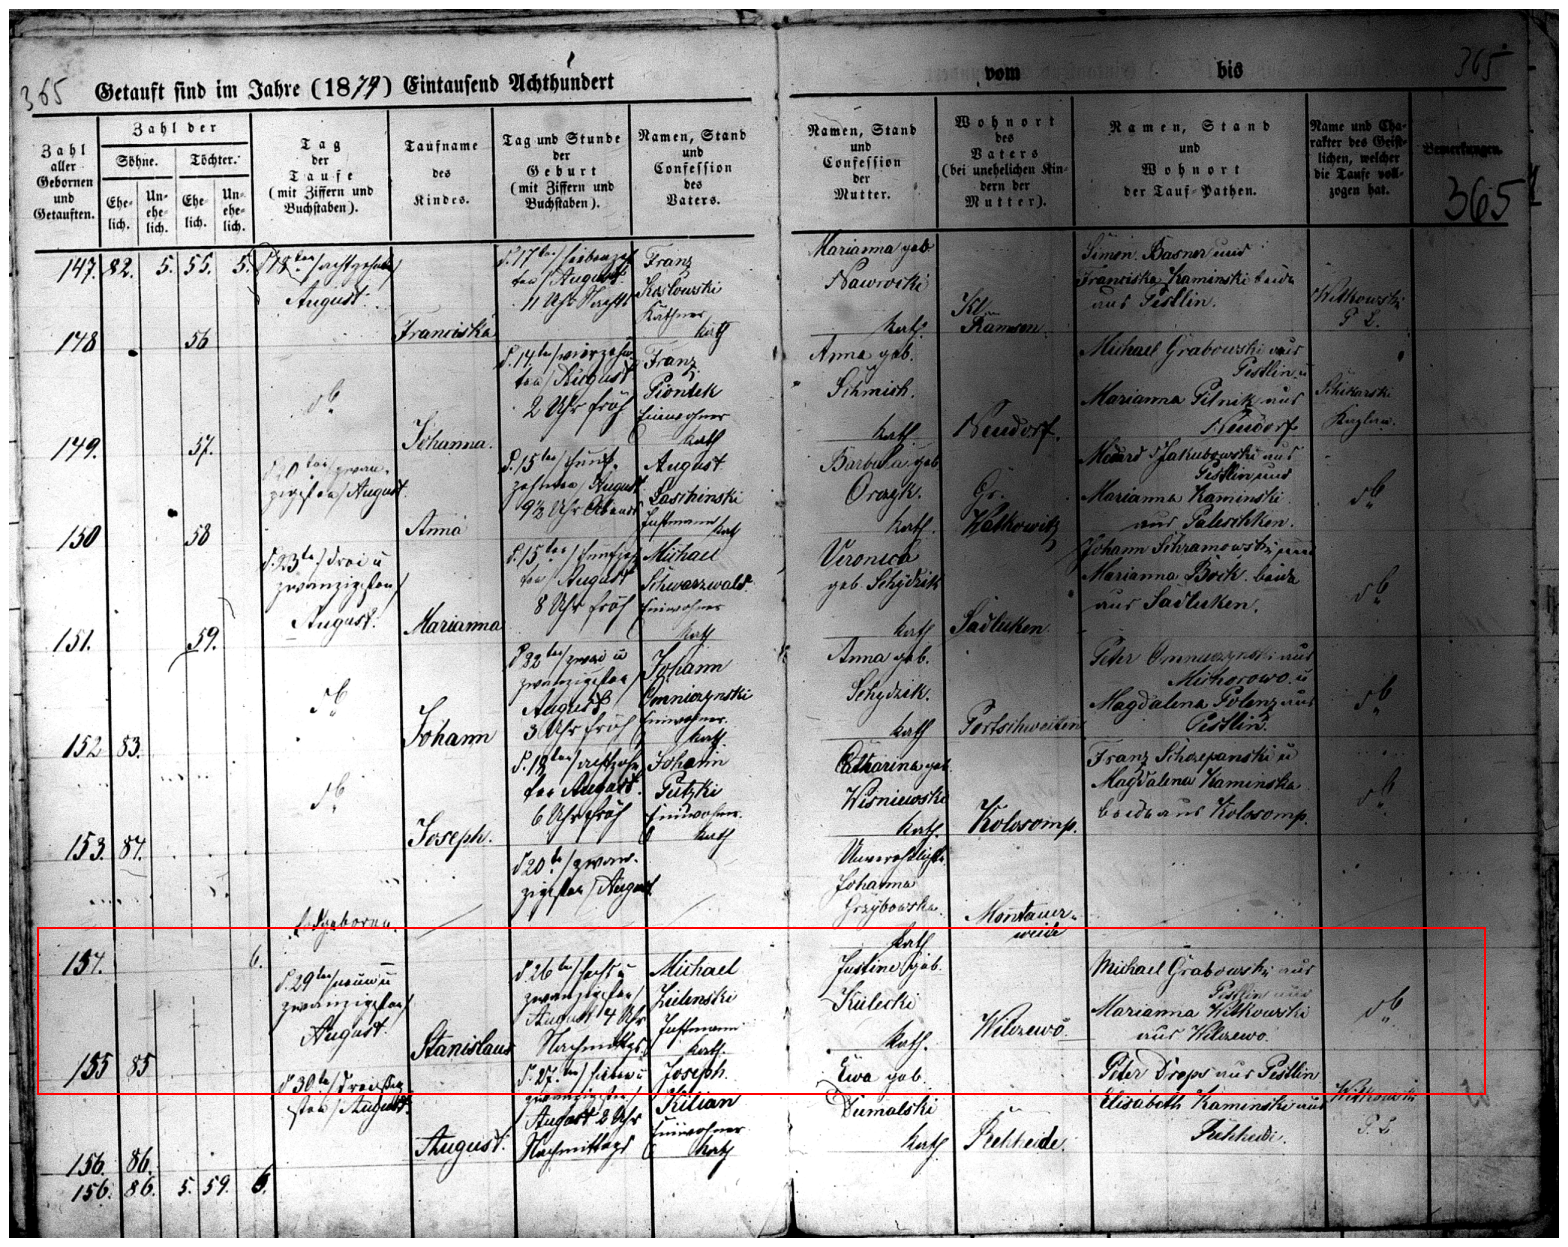 365 Getauft sind im Jahre (1874) Eintausend Achthundert vom bis 365
Zahl aller Gebornen und Getauften.
Zahl der
Söhne. Töchter.
Ehe-lich. Un-ehe-lich. Ehe-lich. Un-ehe-lich.
Tag der Taufe (mit Ziffern und Buchstaben).
Taufname des Kindes.
Tag und Stunde der Geburt (mit Ziffern und Buchstaben).
Namen, Stand und Confession des Vaters.
Namen, Stand und Confession der Mutter.
Wohnort des Vaters (bei unehelichen Kindern der Mutter).
Namen, Stand und Wohnort der Tauf-Pathen.
Name und Charakter des Geistlichen, welcher die Taufe vollzogen hat.
Bemerkungen.
365
147. 82. 5. 55. 5.
d. 18ten / achtzehnten / August.
Franciska
d. 17ten / siebenzehnten / August. 11 Uhr Nachts
Franz Koslowski Käthner kath
Marianna geb. Nawrocki kath.
Kl. Ramsen
Simon Basner und
Franciska Kaminski beide
aus Pestlin.
Witkowski
148 56
do
Johanna.
d. 14ten / vierzehnten / August 2 Uhr früh
Franz Piontek Einwohner kath
Anna geb. Schmich. kath.
Neudorf.
Michael Grabowski aus
Pestlin u
Marianna Pilnik aus
Neudorf.
149. 57.
d. 20ten / zwanzigsten / August.
Anna
d. 15ten / fünfzehnten / August 9½ Uhr Abends
August Laschinski kath
Barbara geb Orczyk. kath.
Gr. Watkowitz
Jakubowski aus
Pestlin und
Marianna Kaminski
aus Paleschken.
do
150 58
d. 23ten / drei u zwanzigsten / August.
Marianna
d. 15ten / fünfzehnten / August 8 Uhr früh
Michael Schwarzwald. Einwohner kath
Veronica geb. Schydzik kath
Sadluken.
Johann Schramowski und
Marianna Bock beide
aus Sadluken.
do
151. 59.
do
Johann
d. 22ten / zwei u zwanzigsten / August 3 Uhr früh
Johann Omniczynski Einwohner. kath.
Anna geb. Schydzik. kath
Portschweiten
Peter Omniczynski aus
Michorowo. u
Magdalena Polenz aus
Pestlin.
do
152 83.
do
Joseph.
d. 18ten / achtzehnten August. 6 Uhr früh
Johann Putzki Einwohner. kath
Catharina geb. Wisniewski kath.
Kolosomp.
Franz Schczepanski u
Magdalena Kaminska
beide aus Kolosomp.
do
153. 84.
todtgeboren.
d. 20ten / zwanzigsten / August
Unverehligte Johanna Grzybowska. kath
Montauerweide
154. 6.
d. 29ten / neun u zwanzigsten / August.
Stanislaus
d. 26ten / sechs u zwanzigsten / August 4 Uhr Nachmittgs.
Michael Zielinski kath.
Justine geb. Kulecki kath.
Wilczewo.
Michael Grabowski aus
Pestlin und
Marianna Witkowski
aus Wilczewo.
do
155 85
d. 30ten / dreißigsten / August.
August.
d. 27ten / sieben u zwanzigsten / August 2 Uhr Nachmittags
Joseph Kilian Einwohner kath
Ewa geb. Dumalski kath
Rehheide.
Peter Drops aus Pestlin
Elisabeth Kaminski aus
Rehheide.
Witkowski
156. 86.
156. 86. 5. 59. 6.